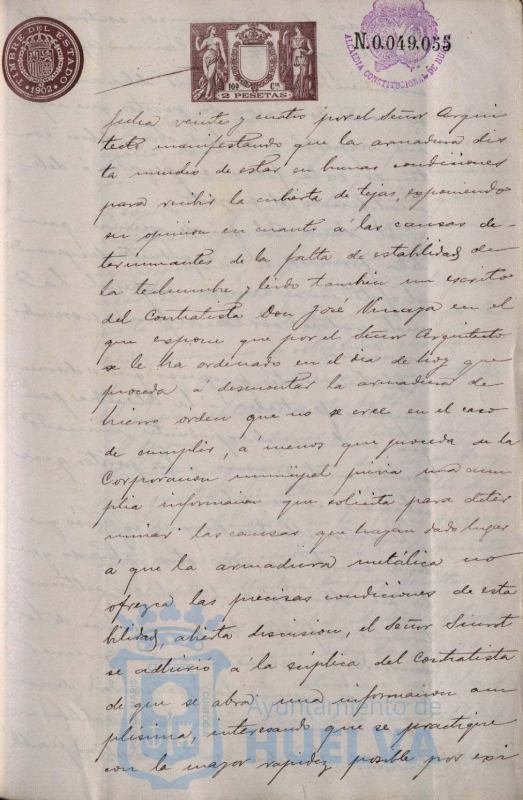 TIMBRE DEL ESTADO
1902
100 Cts
2 PESETAS
N.0.049.055
ALCALDIA CONSTITUCIONAL DE HUELVA
fecha veinte y cuatro por el Señor Arqui
tecto manifestando que la armadura dis
ta mucho de estar en buenas condiciones
para recibir la cubierta de tejas, exponiendo
su opinion en cuanto á las causas de-
terminantes de la falta de estabilidad de
la techumbre y leido tambien un escrito
del Contratista Don José en el
que expone que por el Señor Arquitecto
se le ha ordenado en el dia de hoy que
proceda á desmontar la armadura de
hierro órden que no se cree en el caso
de cumplir, á menos que proceda de la
Corporacion municipal previa una am
plia informacion que solicita para deter
minar las causas que hayan dado lugar
á que la armadura metálica no
ofrezca las precisas condiciones de esta
bilidad, abierta discusion, el Señor
se adhirió á la súplica del Contratista
de que se abra una informacion am
plisima, interesando que se practique
con la mayor rapidez posible por exi
Ayuntamiento de
HUELVA